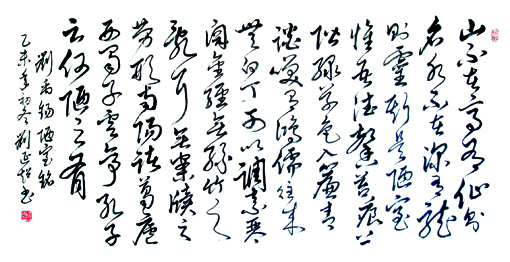 山不在高有仙則
名水不在深有龍
則靈斯是陋室
惟吾德馨苔痕上
階綠草色入簾青
談笑有鴻儒往來
無白丁可以調素琴
閱金經無絲竹之
亂耳無案牘之
勞形南陽諸葛廬
西蜀子雲亭孔子
云何陋之有
劉禹錫陋室銘
乙未年初冬劉書